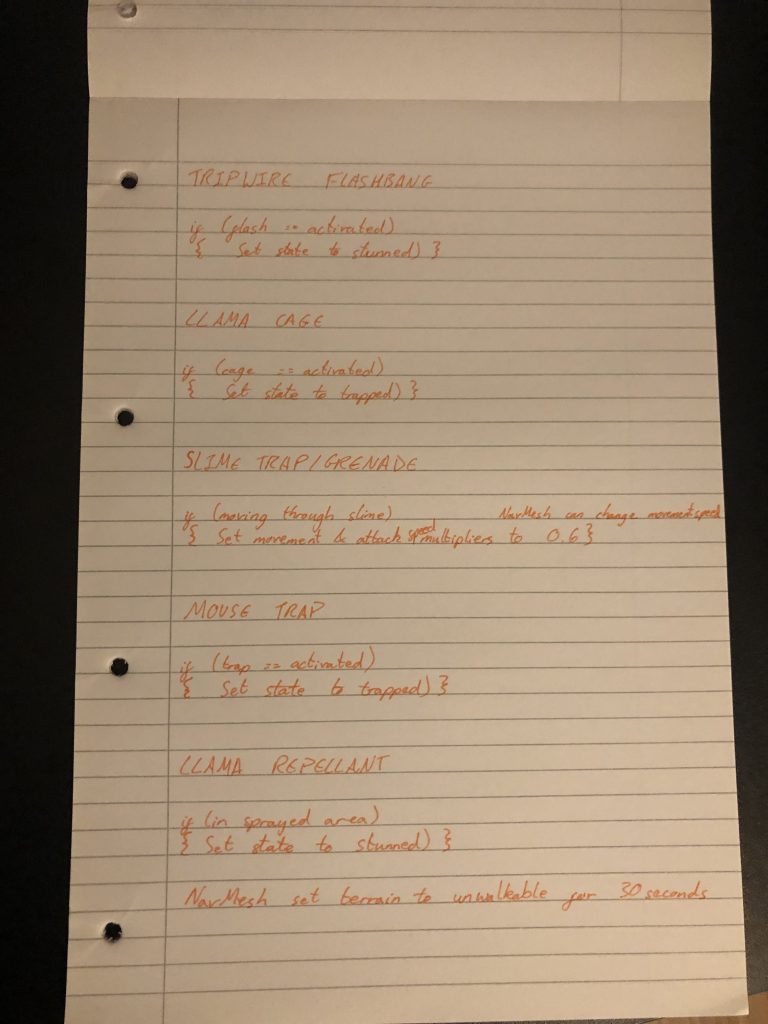 TRIPWIRE FLASHBANG
if (flash == activated)
{ Set state to stunned) }
LLAMA CAGE
if (cage == activated)
{ Set state to trapped) }
SLIME TRAP/GRENADE
if (moving through slime) NavMesh can change movement speed
{ Set movement & attack speed multipliers to 0.6 }
MOUSE TRAP
if (trap == activated)
{ Set state to trapped) }
LLAMA REPELLANT
if (in sprayed area)
{ Set state to stunned) }
NavMesh set terrain to unwalkable for 30 seconds